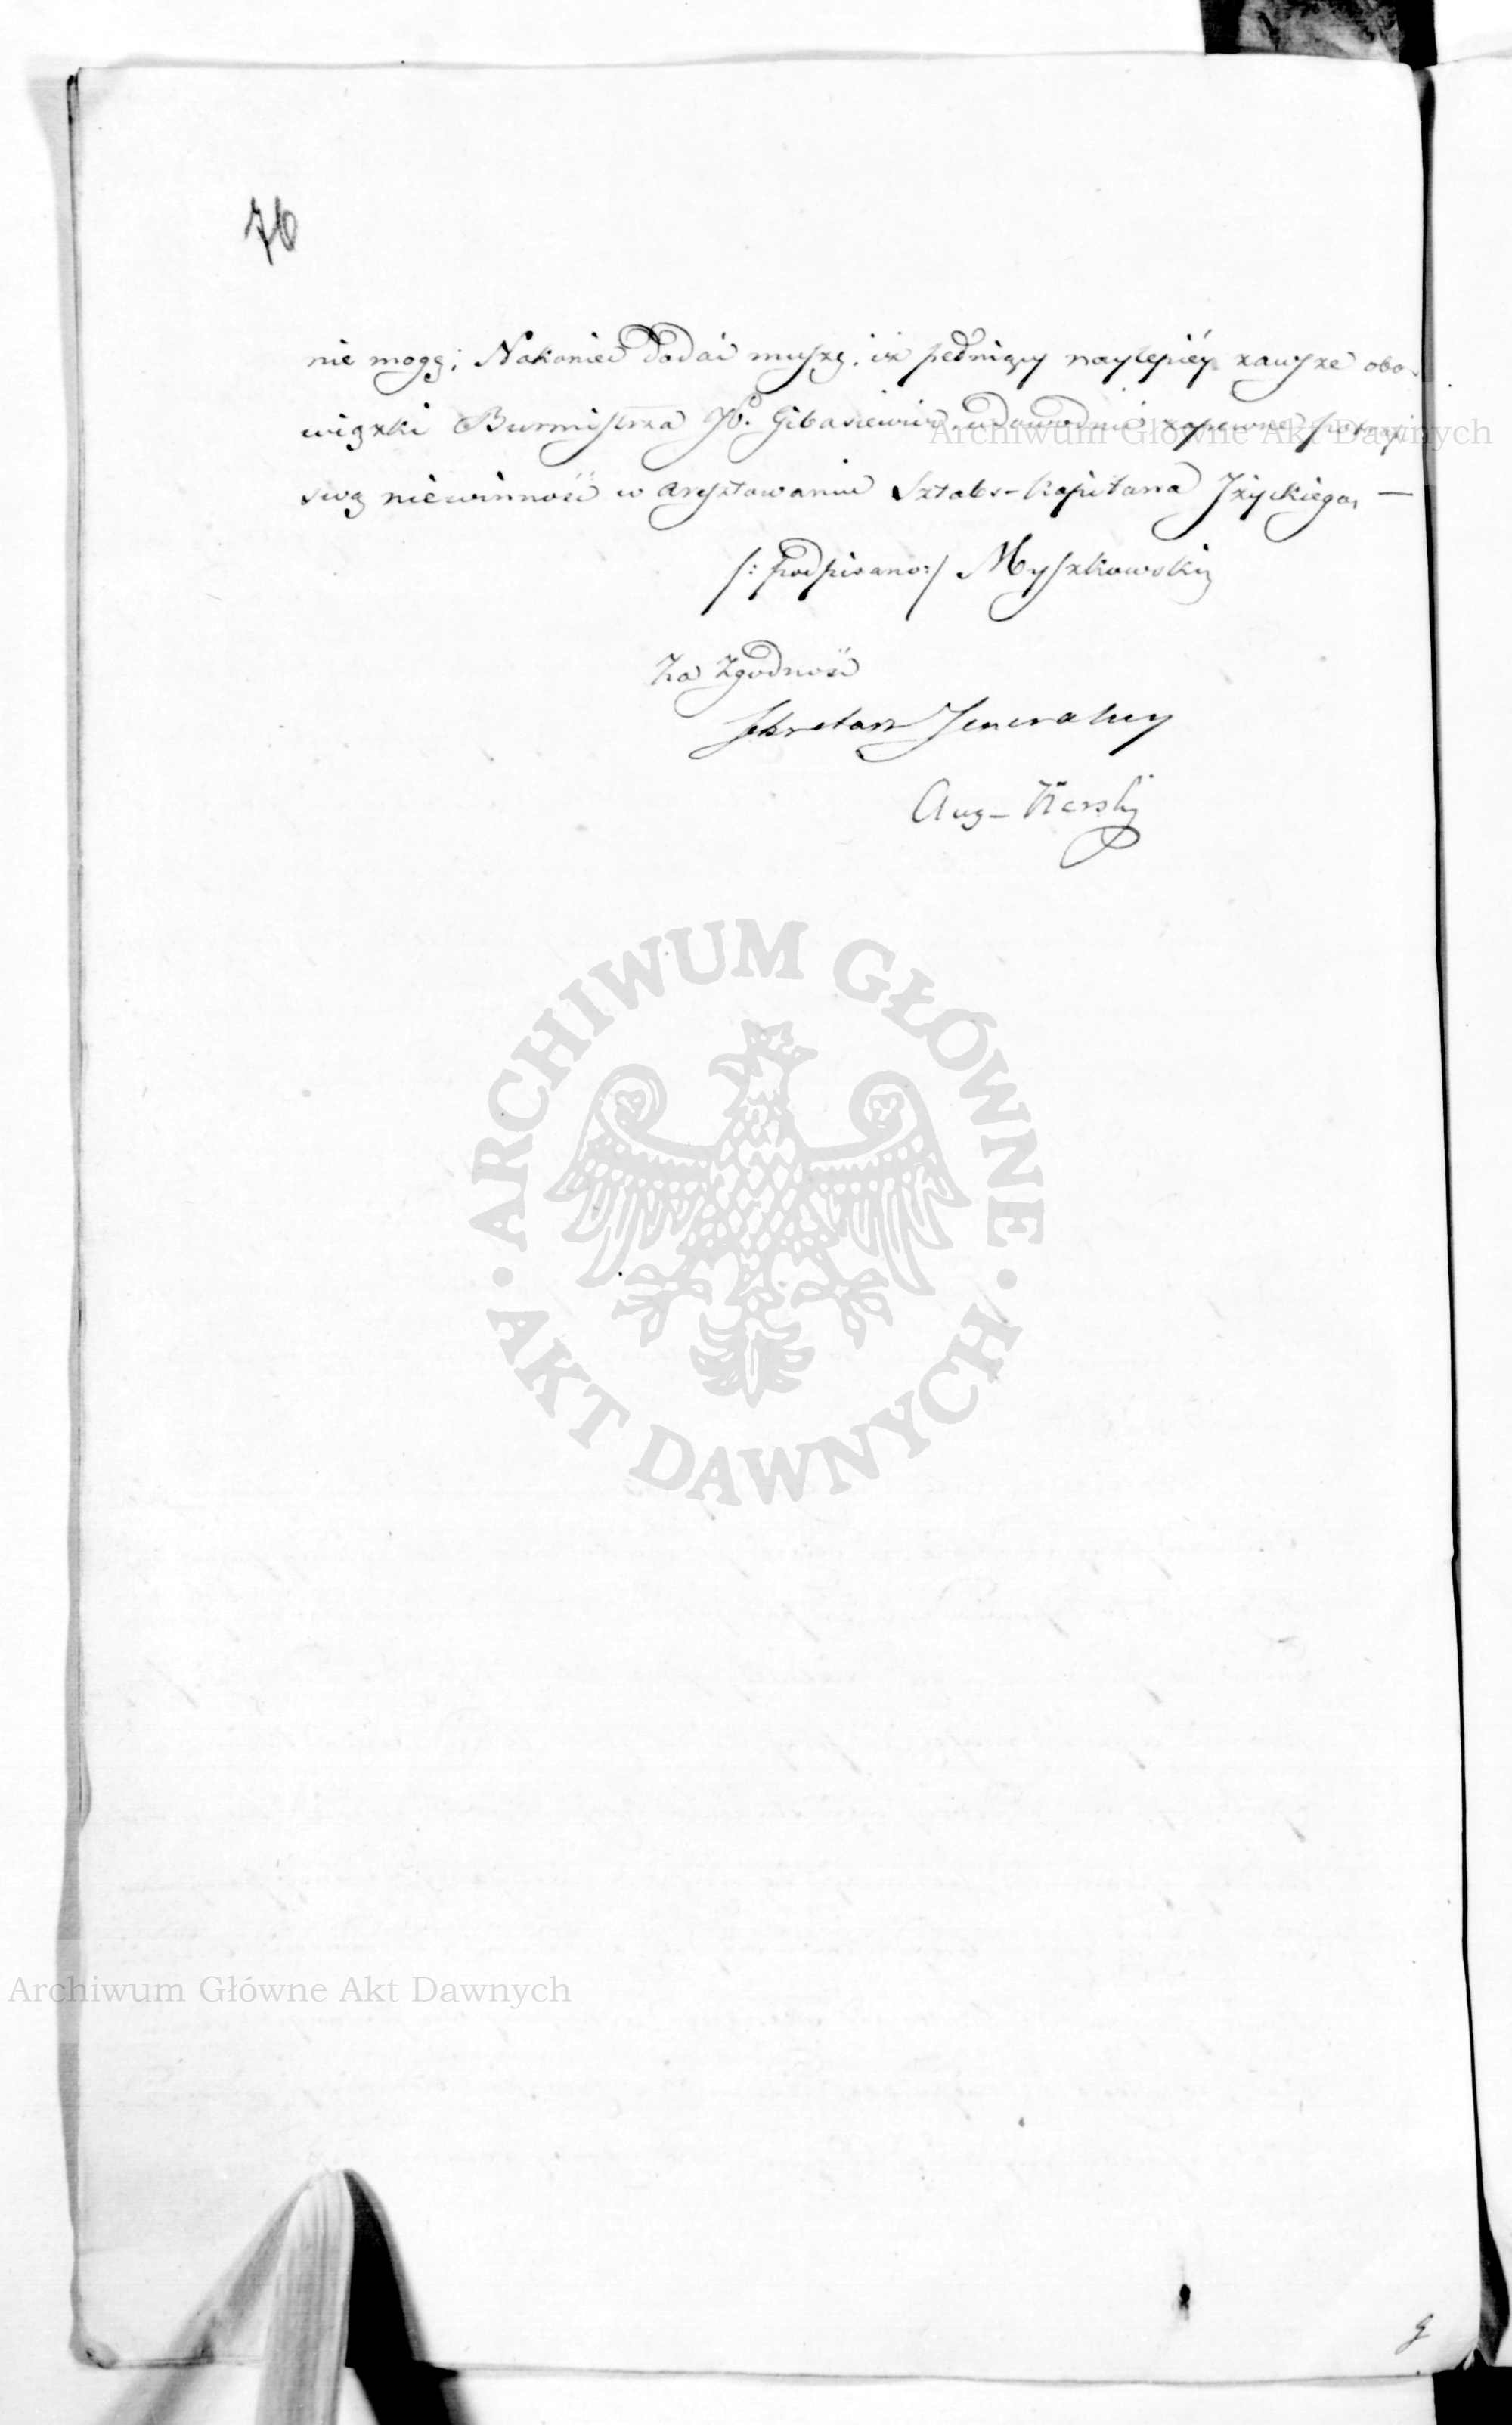 76
nie mogę; Nakoniec dodać muszę, iż pełniący naylepiéy zawsze obo-
wiązki Burmistrza JP. Gibasiewicz, udowodnić zapewne potrafi
swą niewinność w aresztowaniu Sztabs-Kapitana Jżyckiego, —
/: podpisano :/ Myszkowski
Za Zgodność
Sekretarz Jeneralny
Aug-
Archiwum Główne Akt Dawnych
ARCHIWUM GŁÓWNE · AKT DAWNYCH ·
Archiwum Główne Akt Dawnych